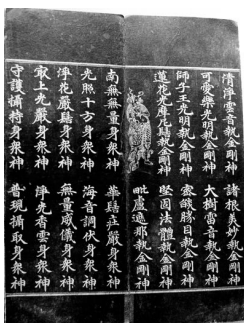 清淨雲音執金剛神 諸根美妙執金剛神
可愛樂光明執金剛神 大樹雷音執金剛神
師子王光明執金剛神 密焰勝目執金剛神
蓮花光摩尼髻執金剛神 堅固法體執金剛神
毗盧遮那執金剛神
南無無量身衆神 華髻莊嚴身衆神
光照十方身衆神 海音調伏身衆神
淨花嚴髻身衆神 無量威儀身衆神
最上光嚴身衆神 淨光香雲身衆神
守護攝持身衆神 普現攝取身衆神